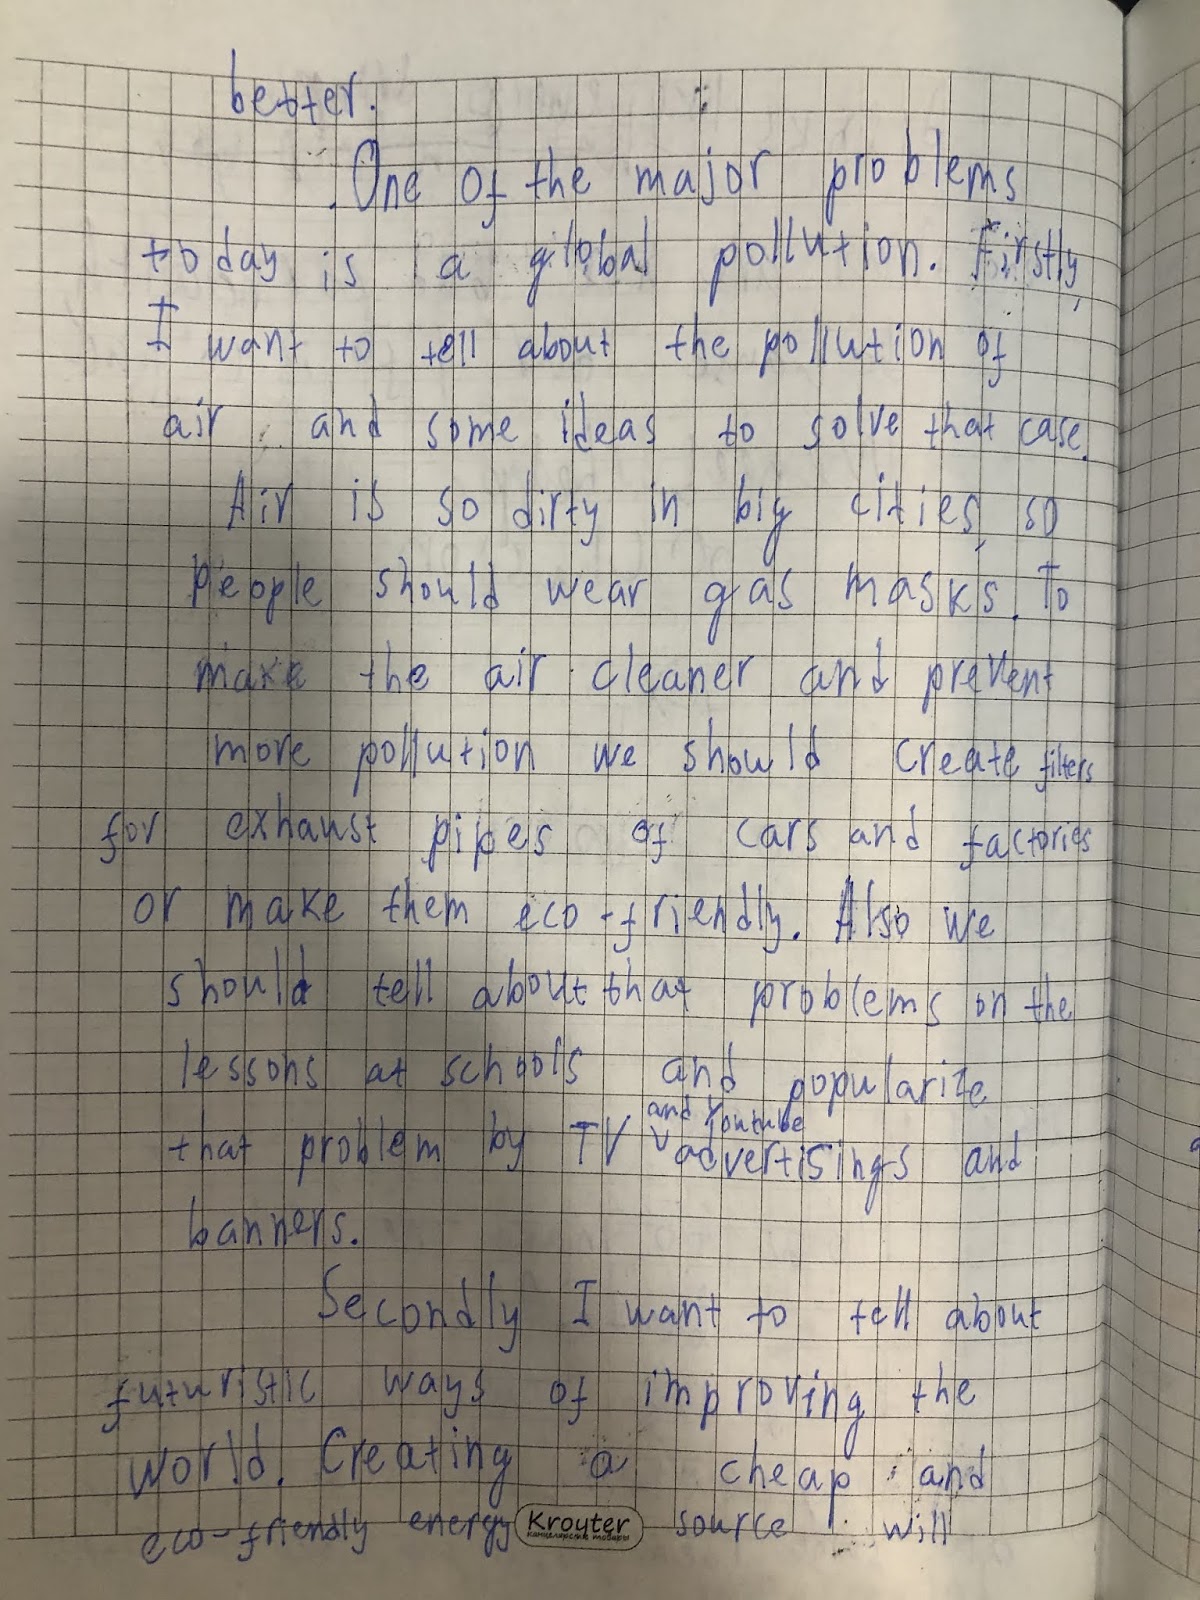 better.
One of the major problems
today is a global pollution. Firstly,
I want to tell about the pollution of
air and some ideas to solve that case.
Air is so dirty in big cities, so
people should wear gas masks. To
make the air cleaner and prevent
more pollution we should create filters
for exhaust pipes of cars and factories
or make them eco-friendly. Also we
should tell about that problems on the
lessons at schools and popularize
and Youtube
that problem by TV advertisings and
banners.
Secondly I want to tell about
futuristic ways of improving the
world. Creating a cheap and
eco-friendly energy source will
Krouter
канцелярские товары